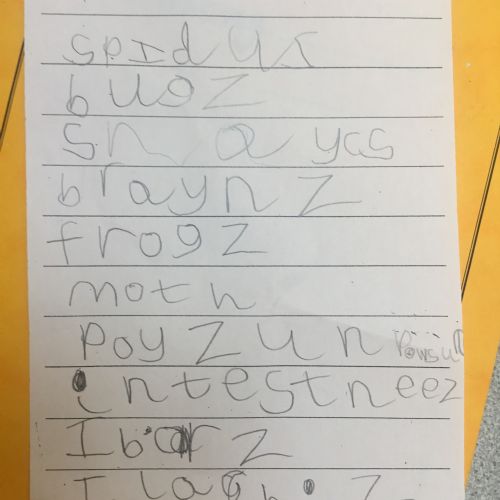 spidus
bugz
snaycs
braynz
frogz
moth
poyzun
intestneez
Iborz